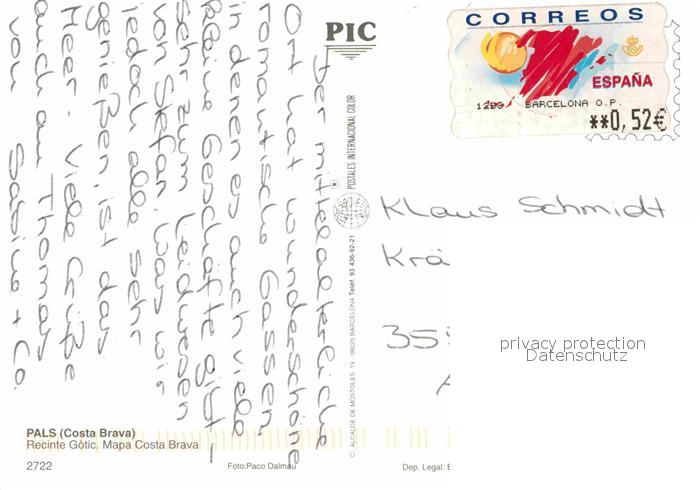 PIC
CORREOS
ESPAÑA
1299 BARCELONA O.P.
**0,52€
Der mittelalterliche
Ort hat wunderschöne
romantische Gassen,
in denen es auch viele
kleine Geschäfte gibt -
sehr zum Leidwesen
von Stefan. Was wir
jedoch alle sehr
genießen, ist das
Meer. Viele Grüße
auch an Thomas
von Sabine + Co.
POSTALES INTERNACIONAL COLOR
C/. ALCALDE DE MOSTOLES, 19 - 08025 BARCELONA Teléf. 93 436-92-21
Klaus Schmidt
Krä
35
privacy protection
Datenschutz
PALS (Costa Brava)
Recinte Gòtic. Mapa Costa Brava
2722
Foto:Paco Dalmáu
Dep. Legal: B